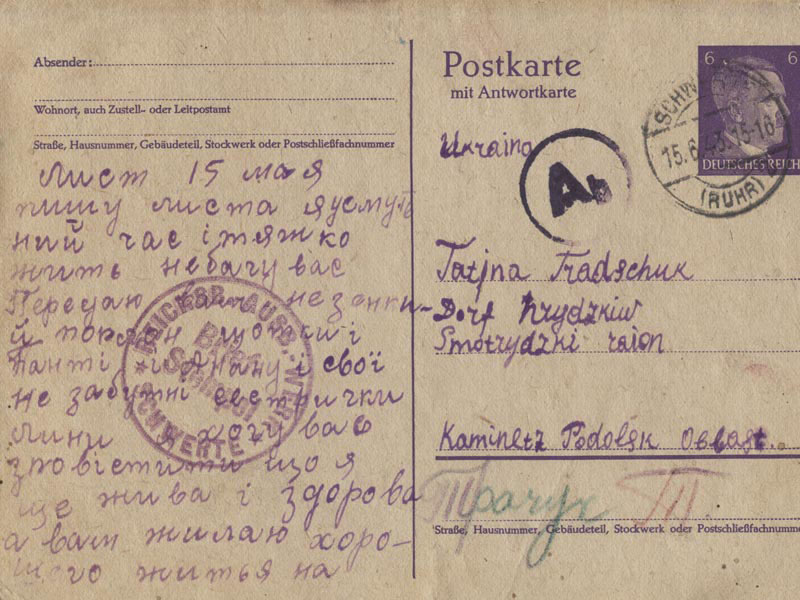 Absender:
Wohnort, auch Zustell- oder Leitpostamt
Straße, Hausnummer, Gebäudeteil, Stockwerk oder Postschließfachnummer
Лист 15 мая
пишу листа я усмут
ний час і тяжко
жить небачу вас
Передаю вам
й
панті і свої
не забутні сестрички
хочу вас
зповістити що я
ще жива і здорова
а вам жилаю хоро-
шого житья на
REICHSB. AUSB. WERK
SCHWERTE
Postkarte
mit Antwortkarte
6 6
DEUTSCHES REICH
15.6.43.15-16
(RUHR)
Ukraina
Ab
Tatjna Tradschuk
Dorf
Smotrydzki raion
Kaminetz Podolsk Oblast.
Трачук ТП
Straße, Hausnummer, Gebäudeteil, Stockwerk oder Postschließfachnumme